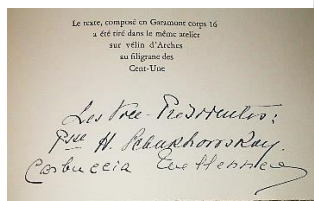 Le texte, composé en Garamont corps 16
a été tiré dans le même atelier
sur vélin d'Arches
au filigrane des
Cent-Une
Les Vice-Présidentes:
Psse H.
Carbuccia